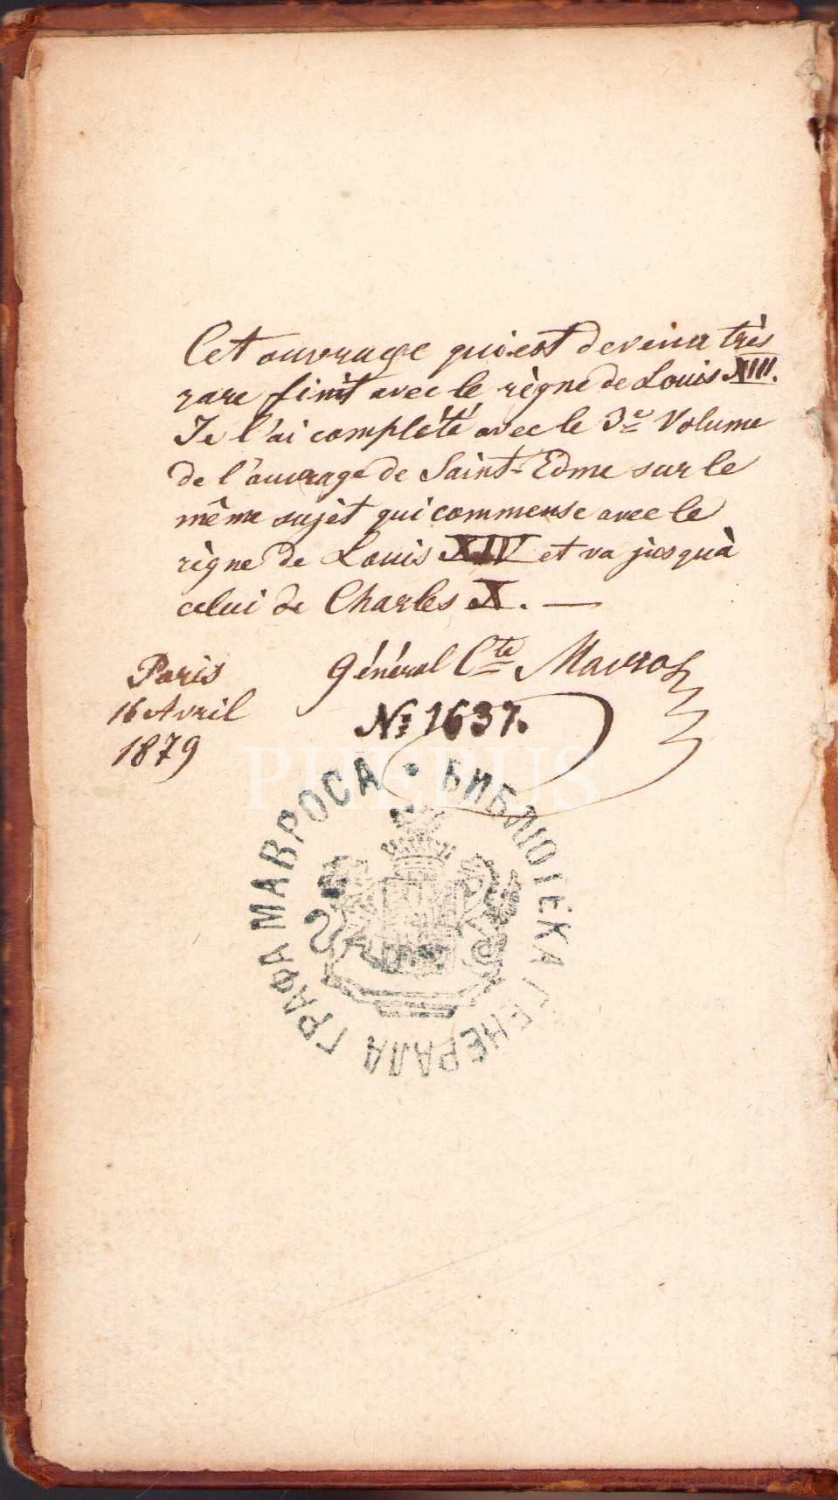 Cet ouvrage qui est devenu très
rare finit avec le règne de Louis XIII.
Je l'ai complété avec le 3e Volume
de l'ouvrage de Saint-Edme sur le
même sujèt qui commense avec le
règne de Louis XIV et va jusquà
celui de Charles X. —
Général Cte Mavros
Paris
16 Avril
1879
No 1637.
PHEBUS
БИБЛІОТЕКА ГЕНЕРАЛА ГРАФА МАВРОСА